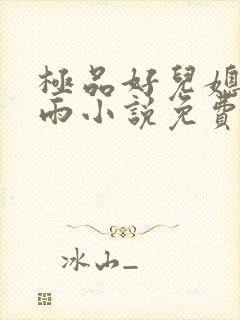 極品好兒媳
雨小説免費
冰山_